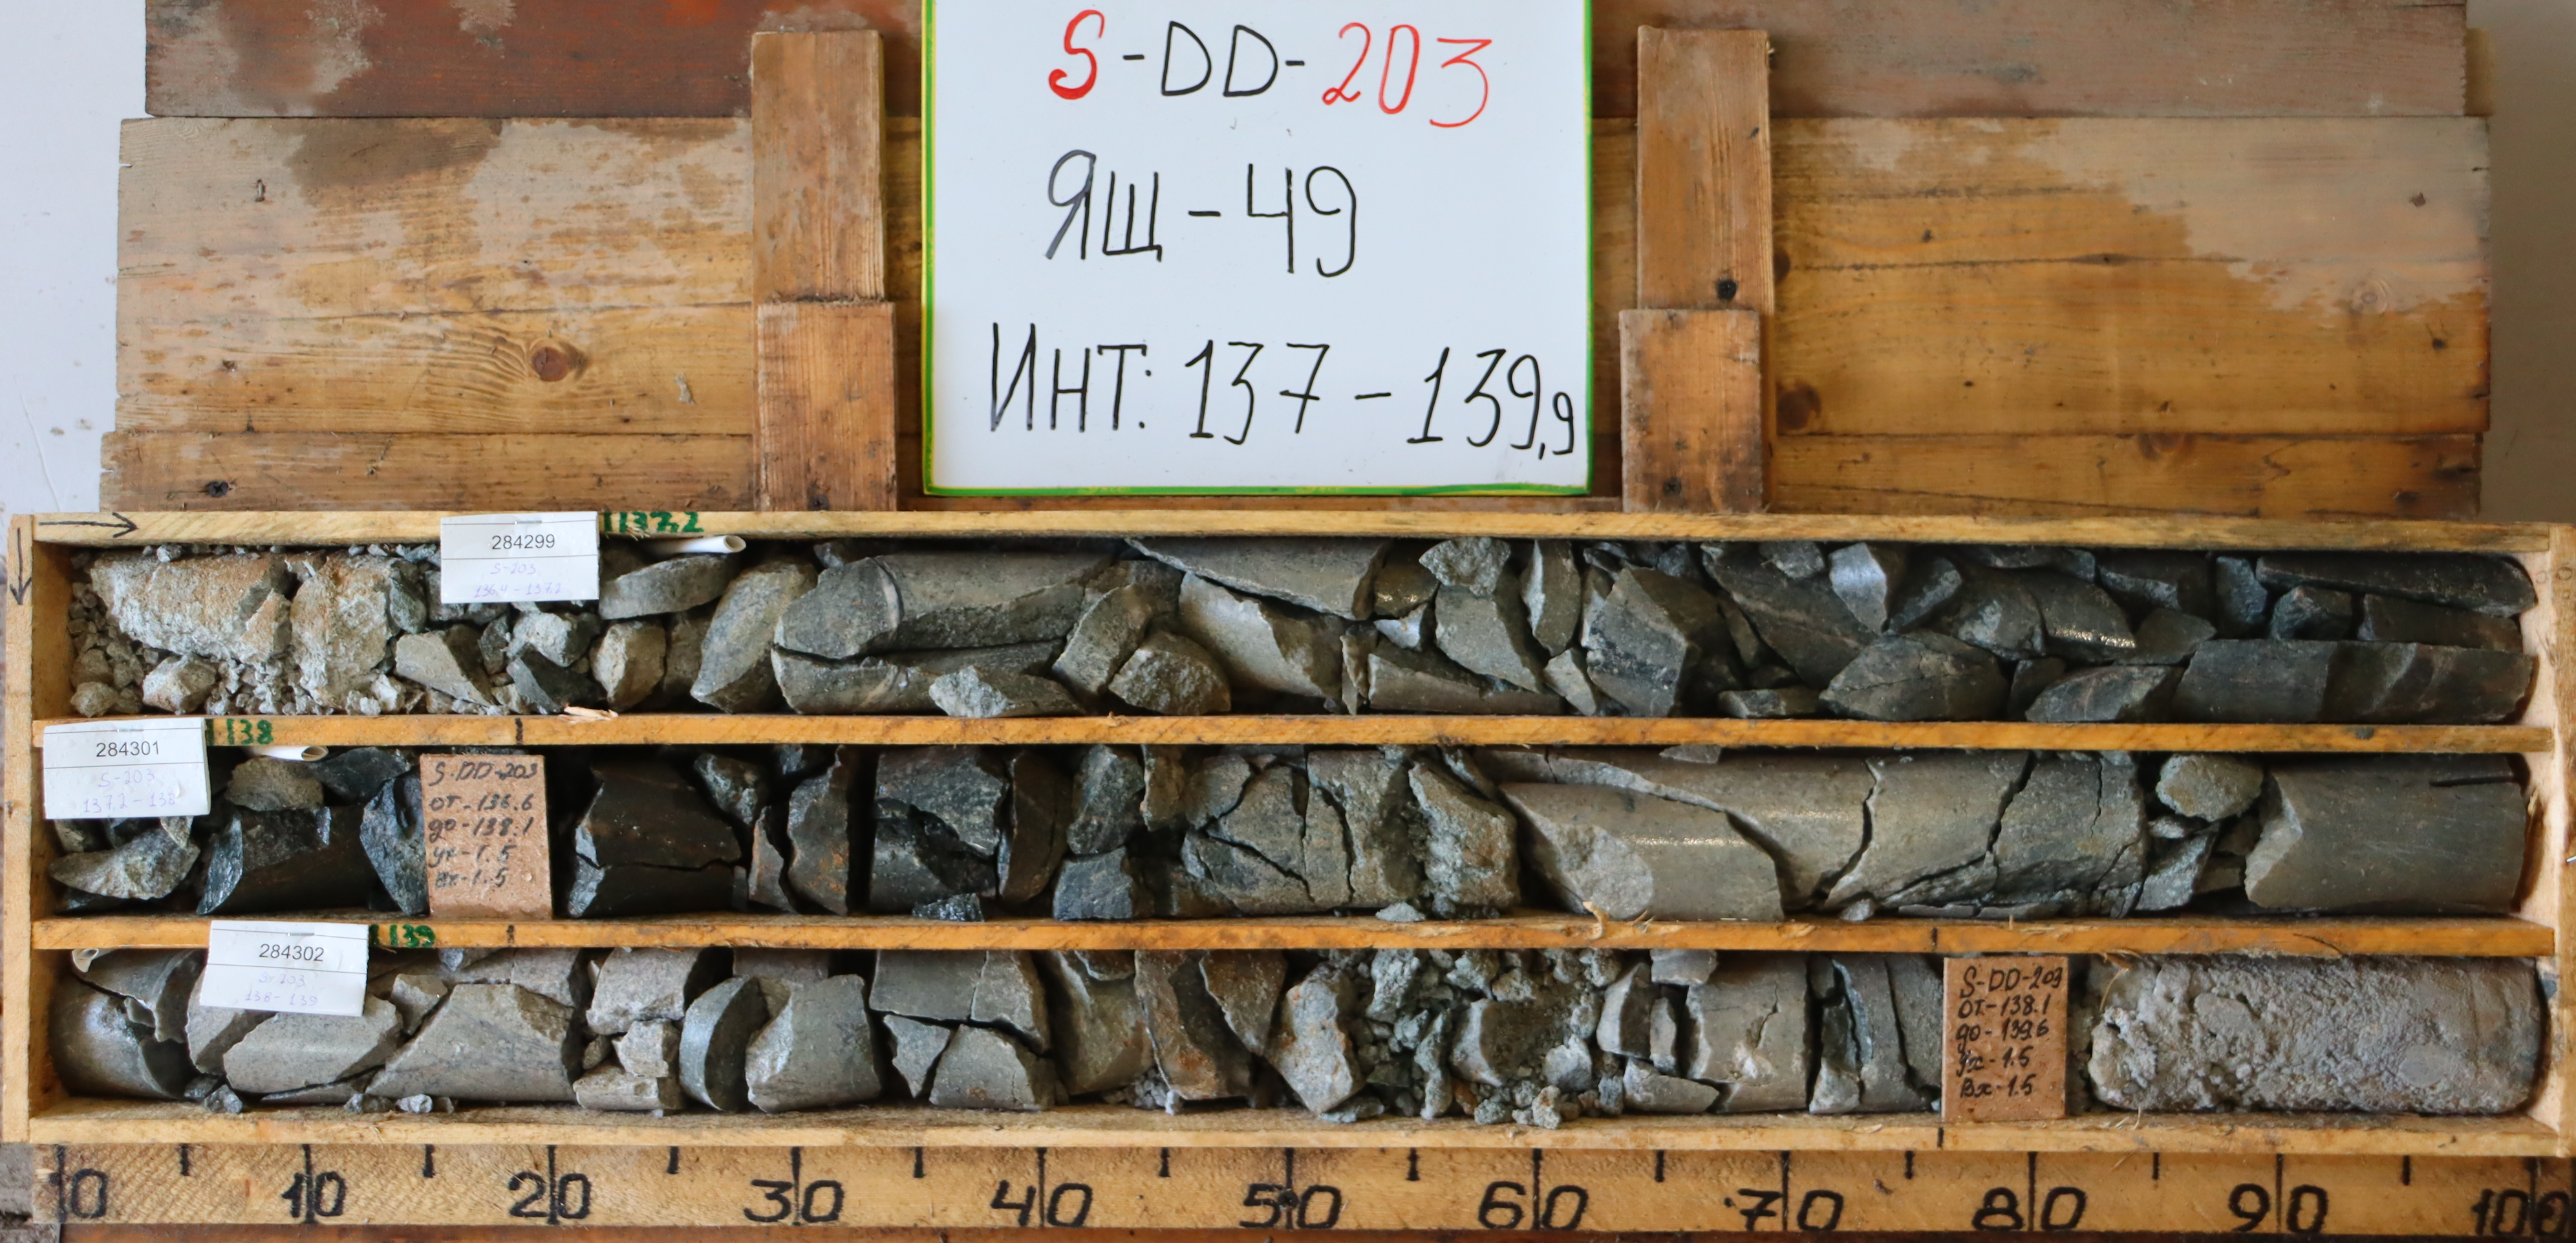 S-DD-203
ЯЩ-49
ИНТ: 137-139,9
137,2
284299
S-203
136,4-137,2
138
284301
S-203
137,2-138
S-DD-203
от-136.6
до-138.1
ух-1.5
Вх-1.5
139
284302
S-203
138-139
S-DD-203
от-138.1
до-139.6
ух-1.5
Вх-1.5
0 10 20 30 40 50 60 70 80 90 100